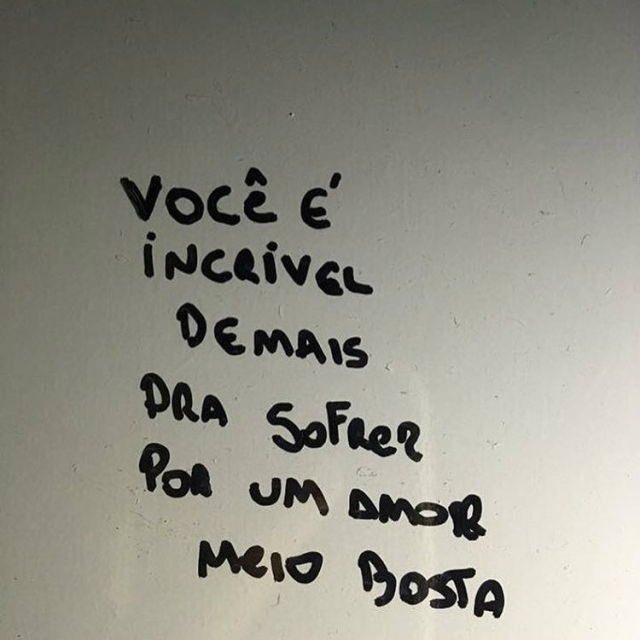 VOCÊ É
INCRÍVEL
DEMAIS
PRA SOFRER
POR UM AMOR
MEIO BOSTA